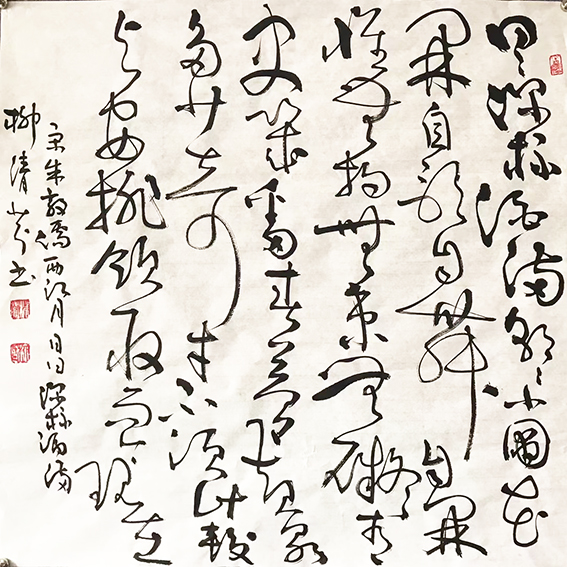 日日深杯酒满朝朝小圃花
开自歌自舞自开
怀无拘无束无碍青
史几番春梦红尘
多少奇才不须计较
与安排领取而今现在
宋朱敦儒西江月日日深杯酒满
柳清 书